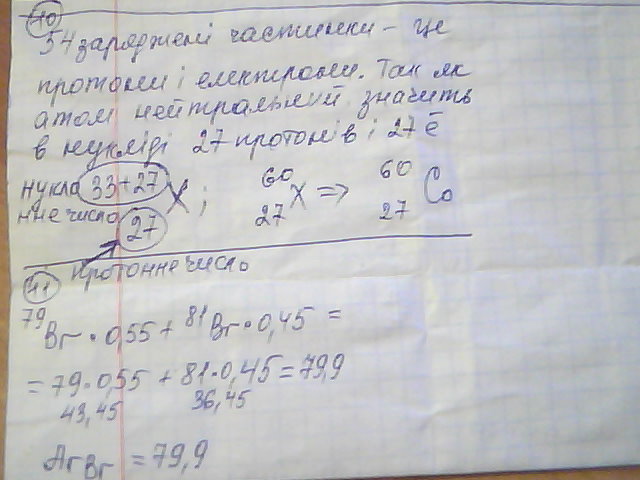 10
54 заряджені частинки – це
протони і електрони. Так як
атом нейтральний, значить
в нукліді 27 протонів і 27 ē
нукло 33+27 X ; 60 27 X => 60 27 Co
нне число 27
протонне число
11
79 Br · 0,55 + 81 Br · 0,45 =
= 79 · 0,55 + 81 · 0,45 = 79,9
43,45 36,45
Ar Br = 79,9